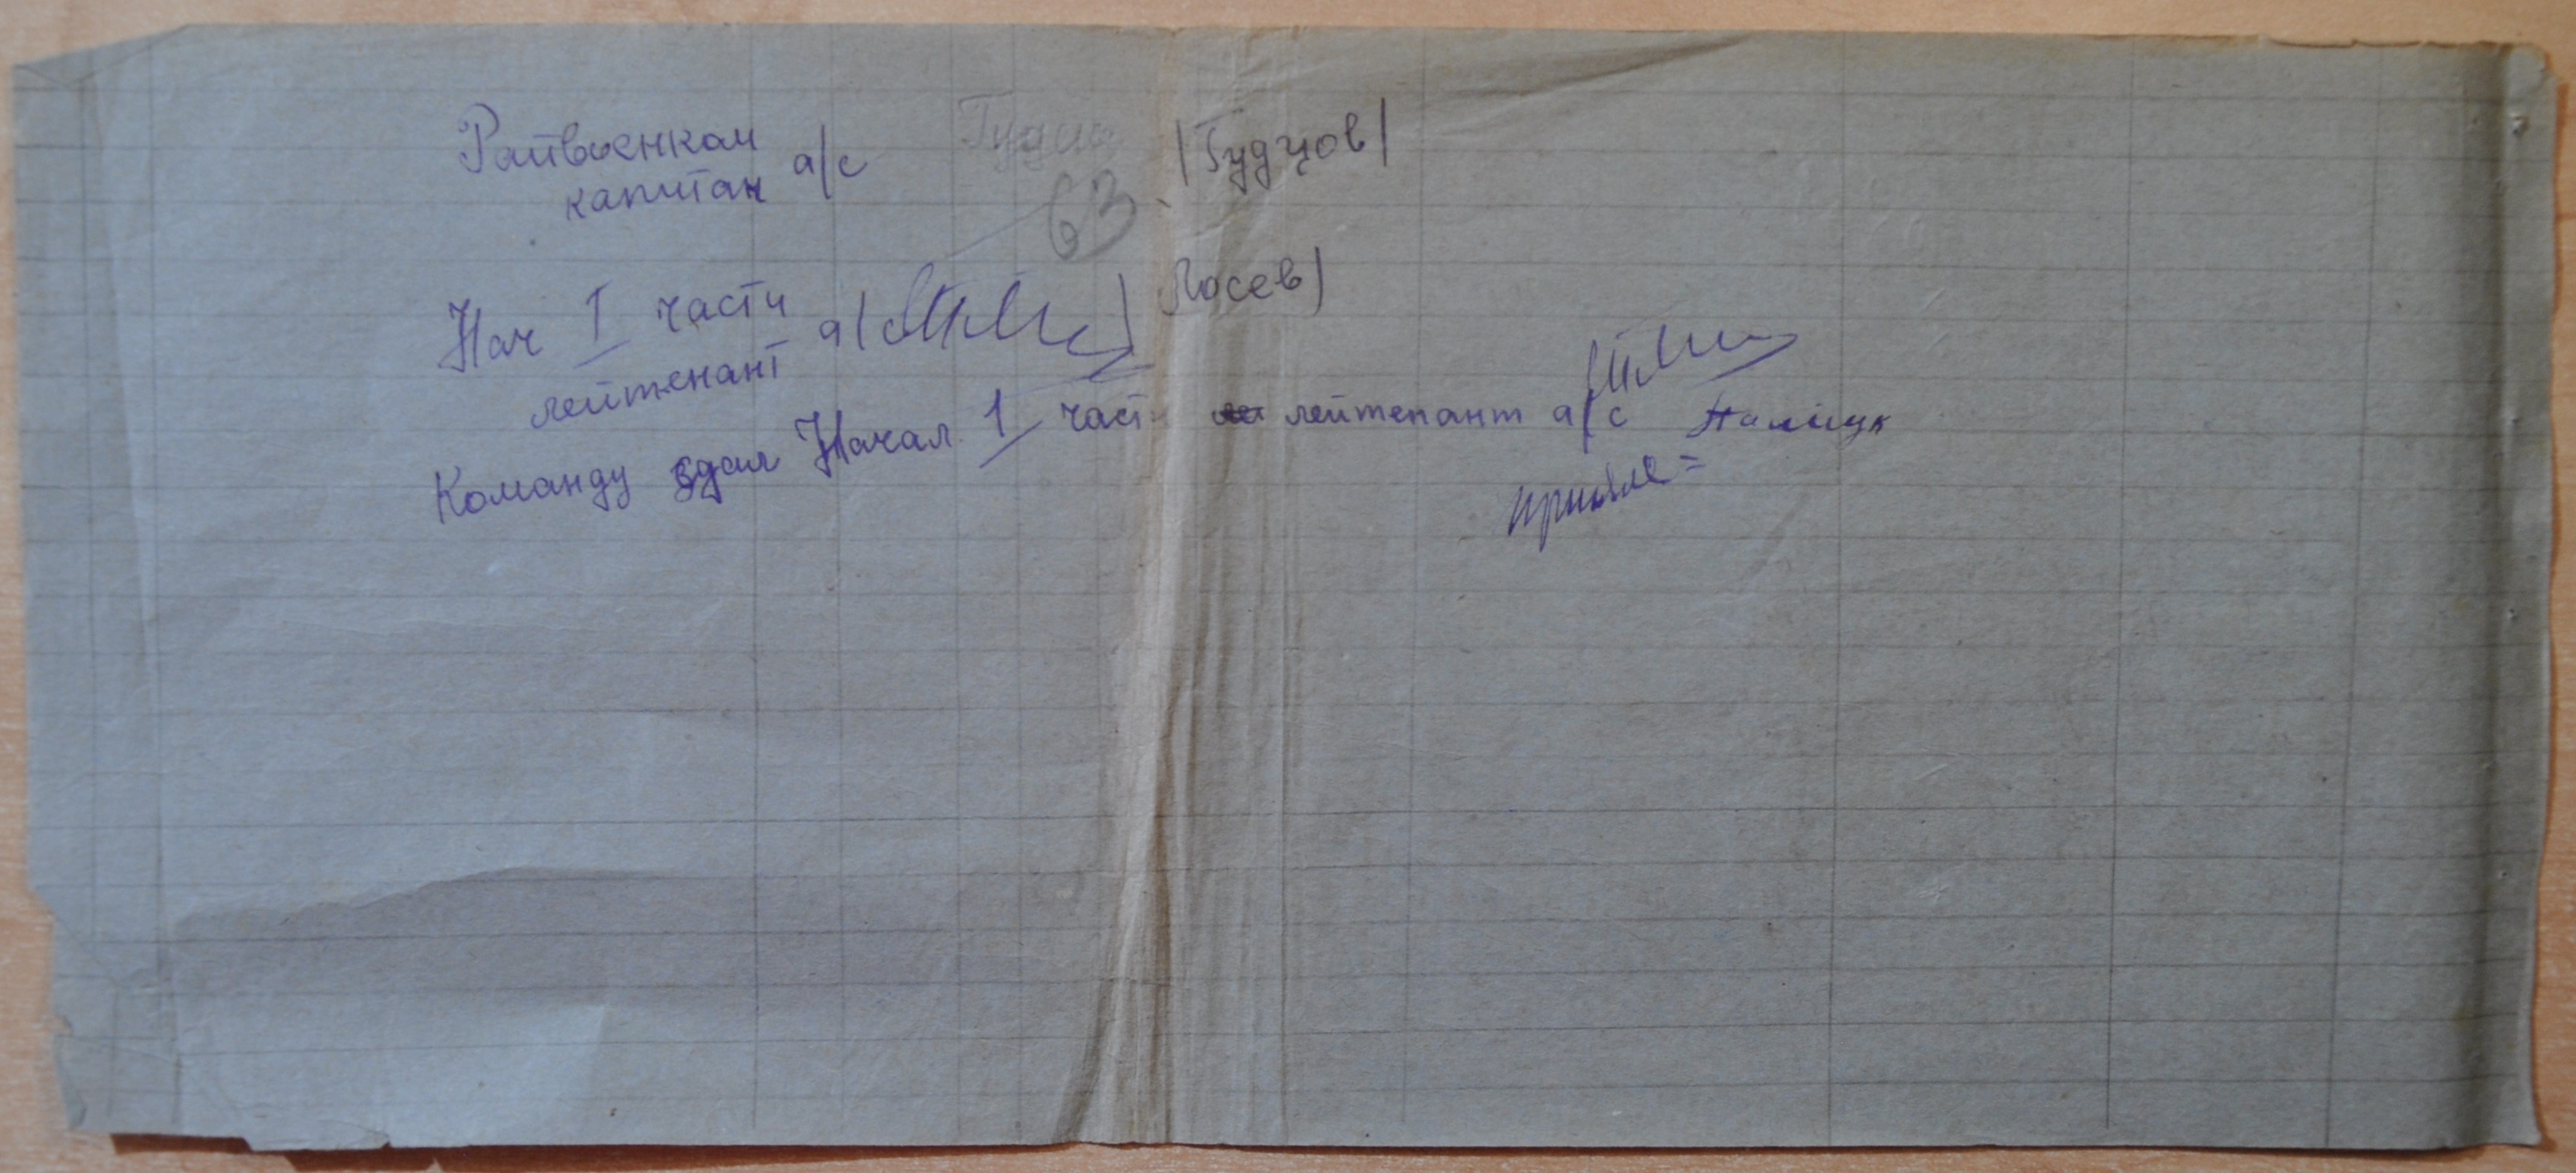 Райвоенком
капитан а/с /Гудцов/
63
Нач I части
лейтенант а/с /Лосев/
Команду сдал Начал 1 части лейтенант а/с
принял =